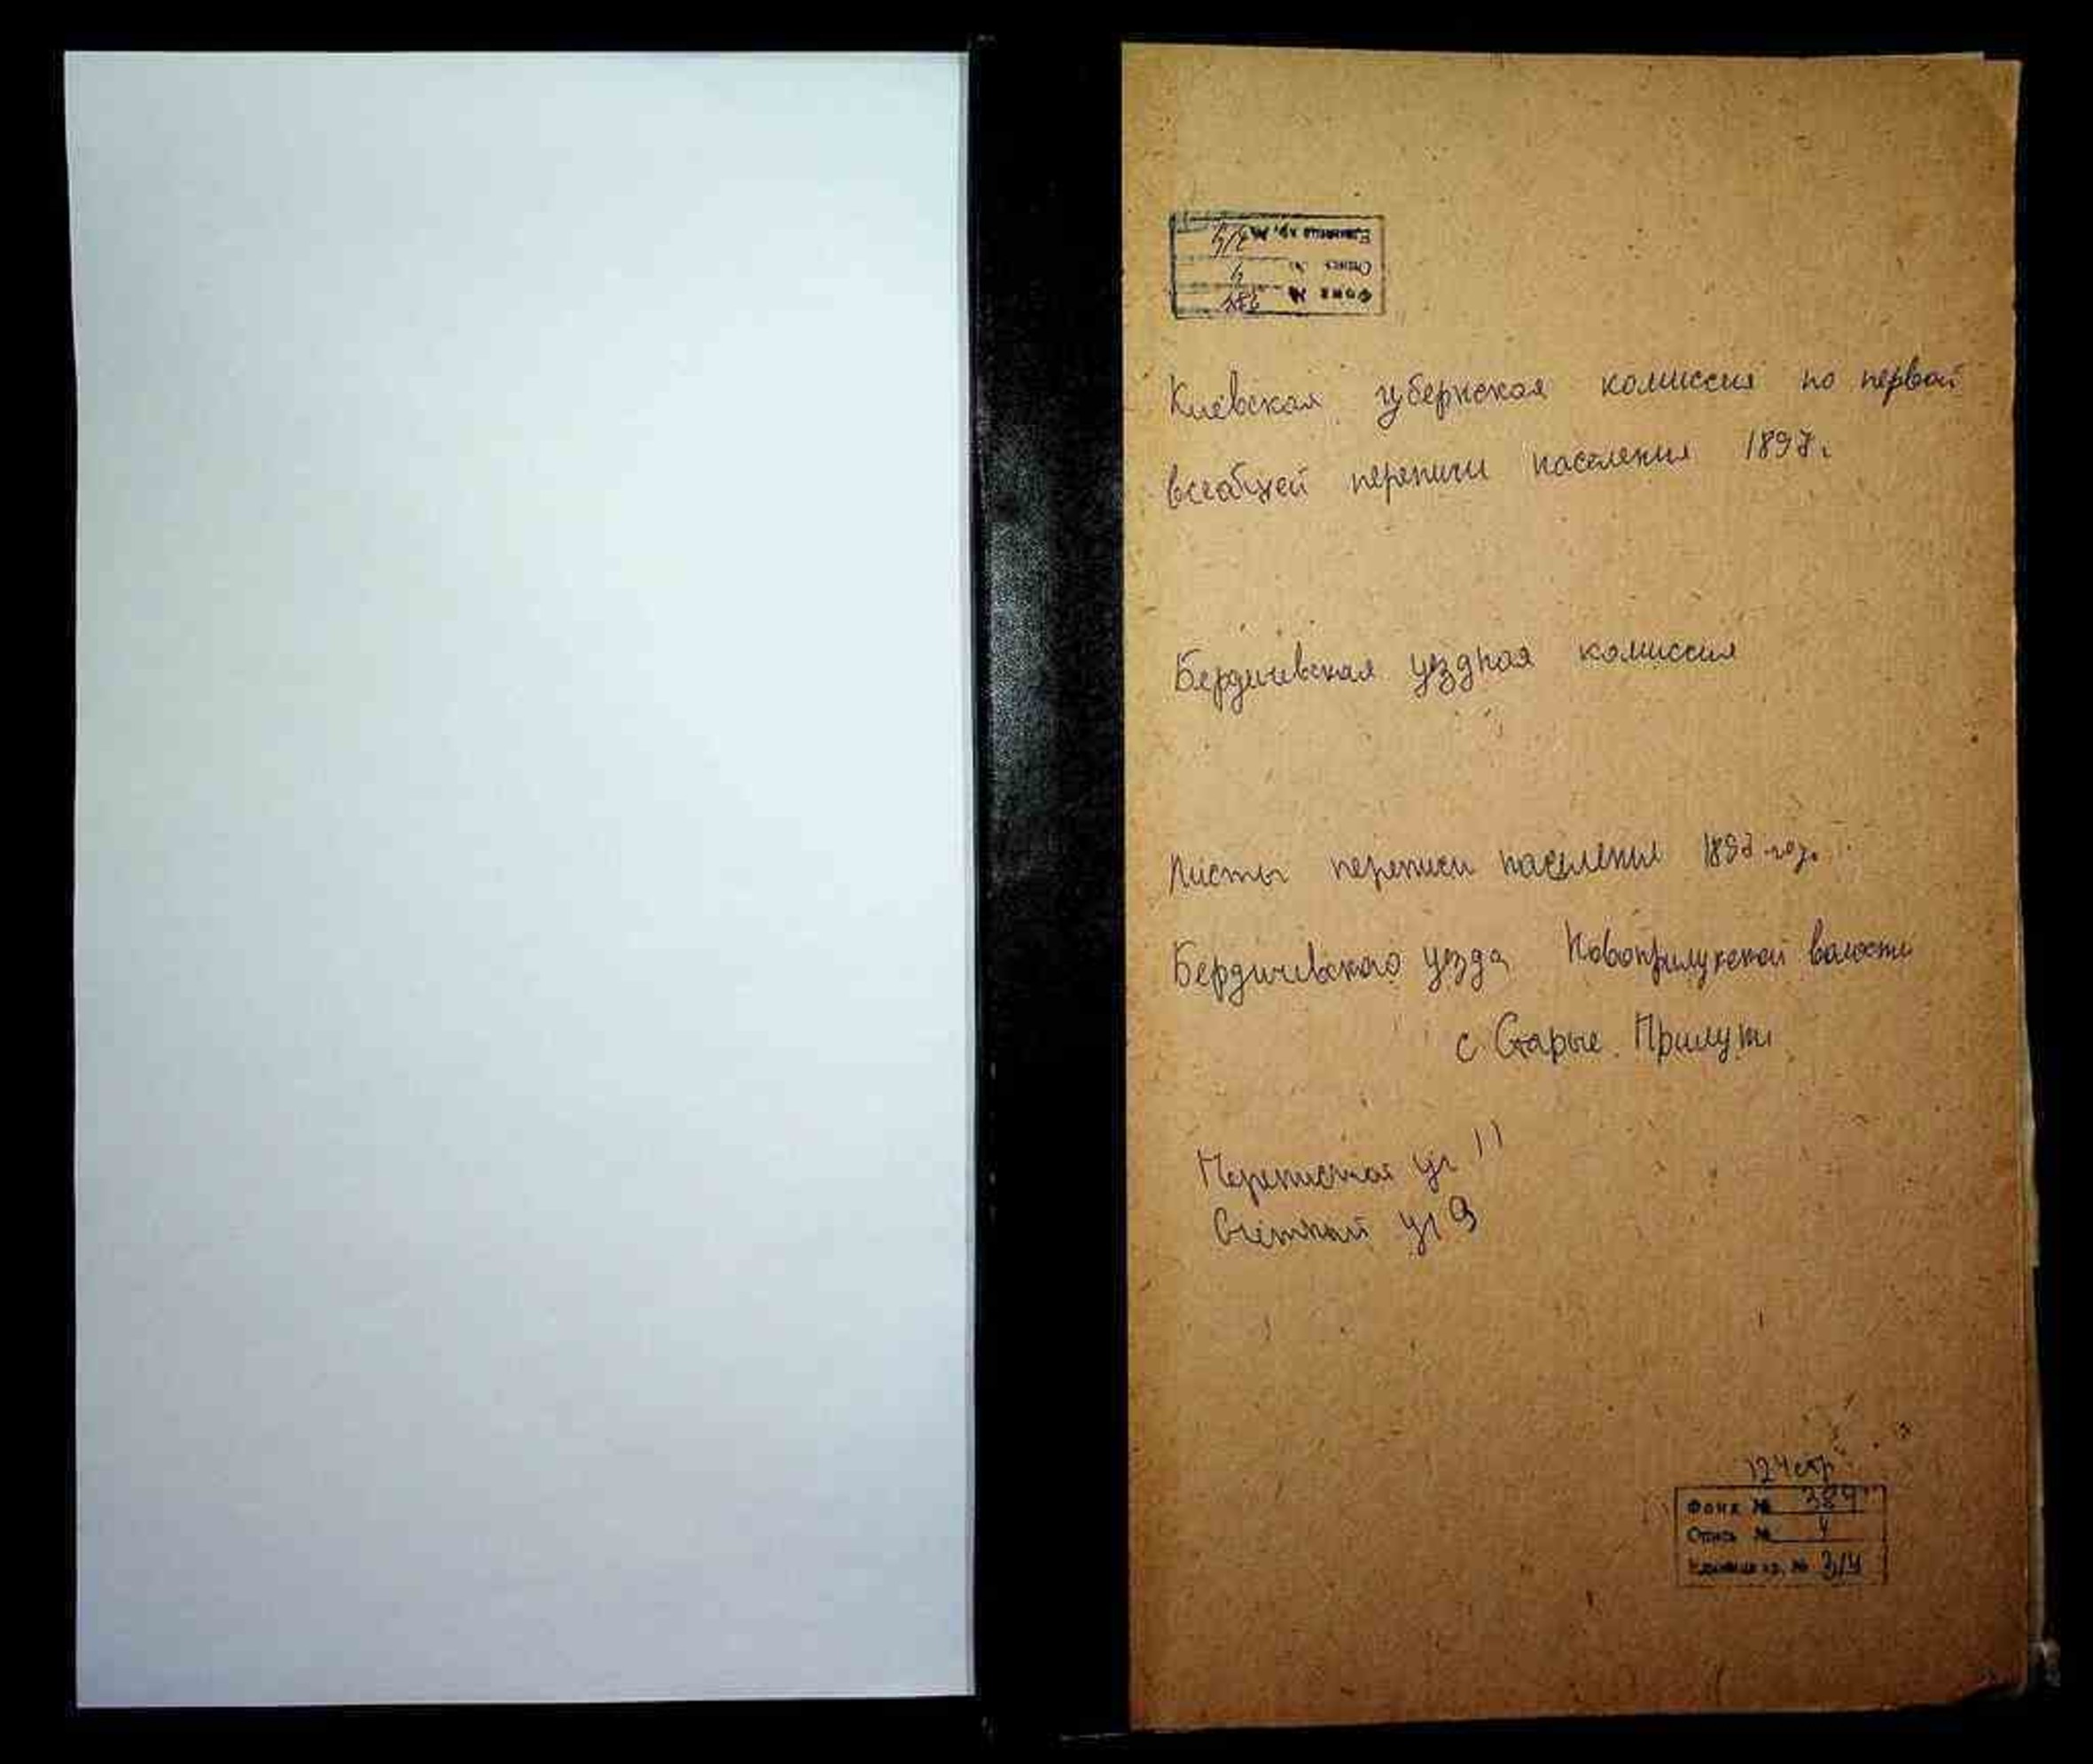 Единица хр. № 314
Опись № 4
Фонд № 384
Киевская губернская комиссия по первой
всеобщей переписи населения 1897г.
Бердичевская уездная комиссия
Листы переписи населения 1897 год.
Бердичевского уезда Новоприлукской волости
с Старые Прилуки
Переписной уч 11
Счётный уч 9
124 стр
Фонд № 384
Опись № 4
Единица хр. № 314